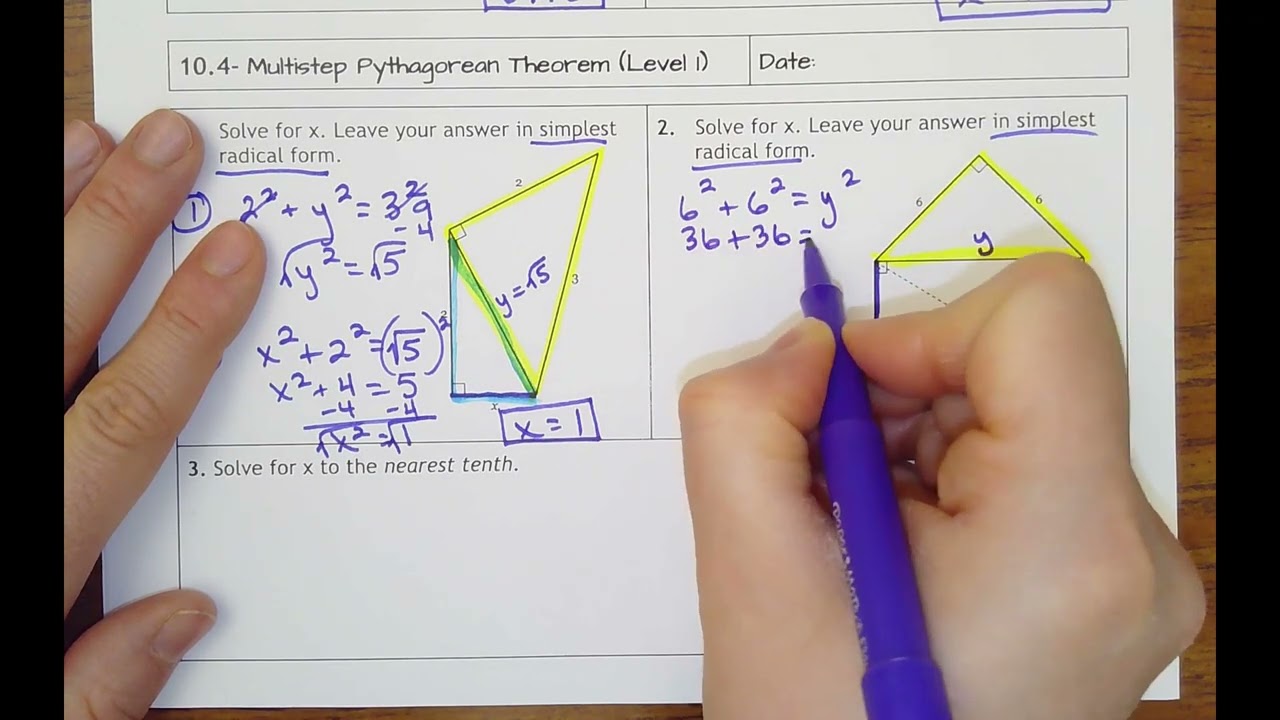 10.4- Multistep Pythagorean Theorem (Level 1)
Date:
Solve for x. Leave your answer in simplest
radical form.
1
2² + y² = 3² 9
- 4
√y² = √5
x² + 2² = (√5)²
x² + 4 = 5
-4 -4
√x² = √1
x = 1
2
3
y = √5
2
x
2. Solve for x. Leave your answer in simplest
radical form.
6² + 6² = y²
36 + 36 =
6
6
y
3. Solve for x to the nearest tenth.